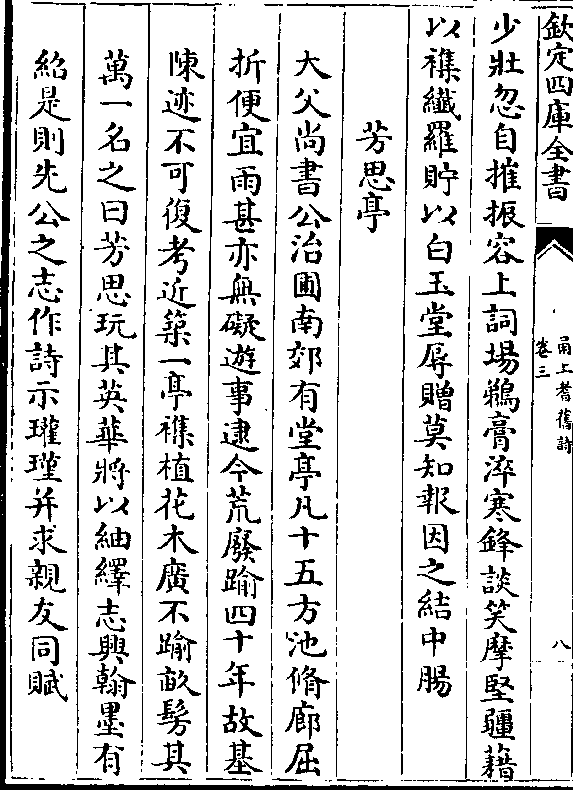 欽定四庫全書
甬上耆舊詩
卷三
八
少壯忽自摧振容上詞場鵜膏淬寒鋒談笑摩堅疆藉
以襍纖羅貯以白玉堂辱贈莫知報因之結中腸
芳思亭
大父尚書公治圃南郊有堂亭凡十五方池脩廊屈
折便宜雨甚亦無礙遊事逮今荒廢踰四十年故基
陳迹不可復考近築一亭襍植花木廣不踰畝髣其
萬一名之曰芳思玩其英華將以紬繹志興翰墨有
紹是則先公之志作詩示瓘瑾并求親友同賦